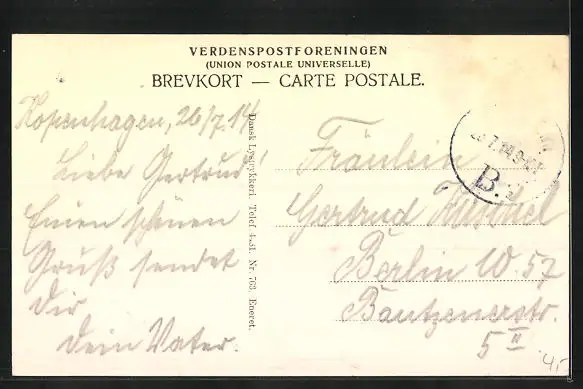 VERDENSPOSTFORENINGEN
(UNION POSTALE UNIVERSELLE)
BREVKORT — CARTE POSTALE.
Kopenhagen, 26/7.14
Liebe Gertrud!
Einen schönen
Gruß sendet
Dir
Dein Vater.
Dansk Lystrykkeri. Telef. Nr. 763. Eneret.
Fräulein
Gertrud
Berlin W. 57
Bautzenerstr.
5 II
7.14.9-
B.
4,-